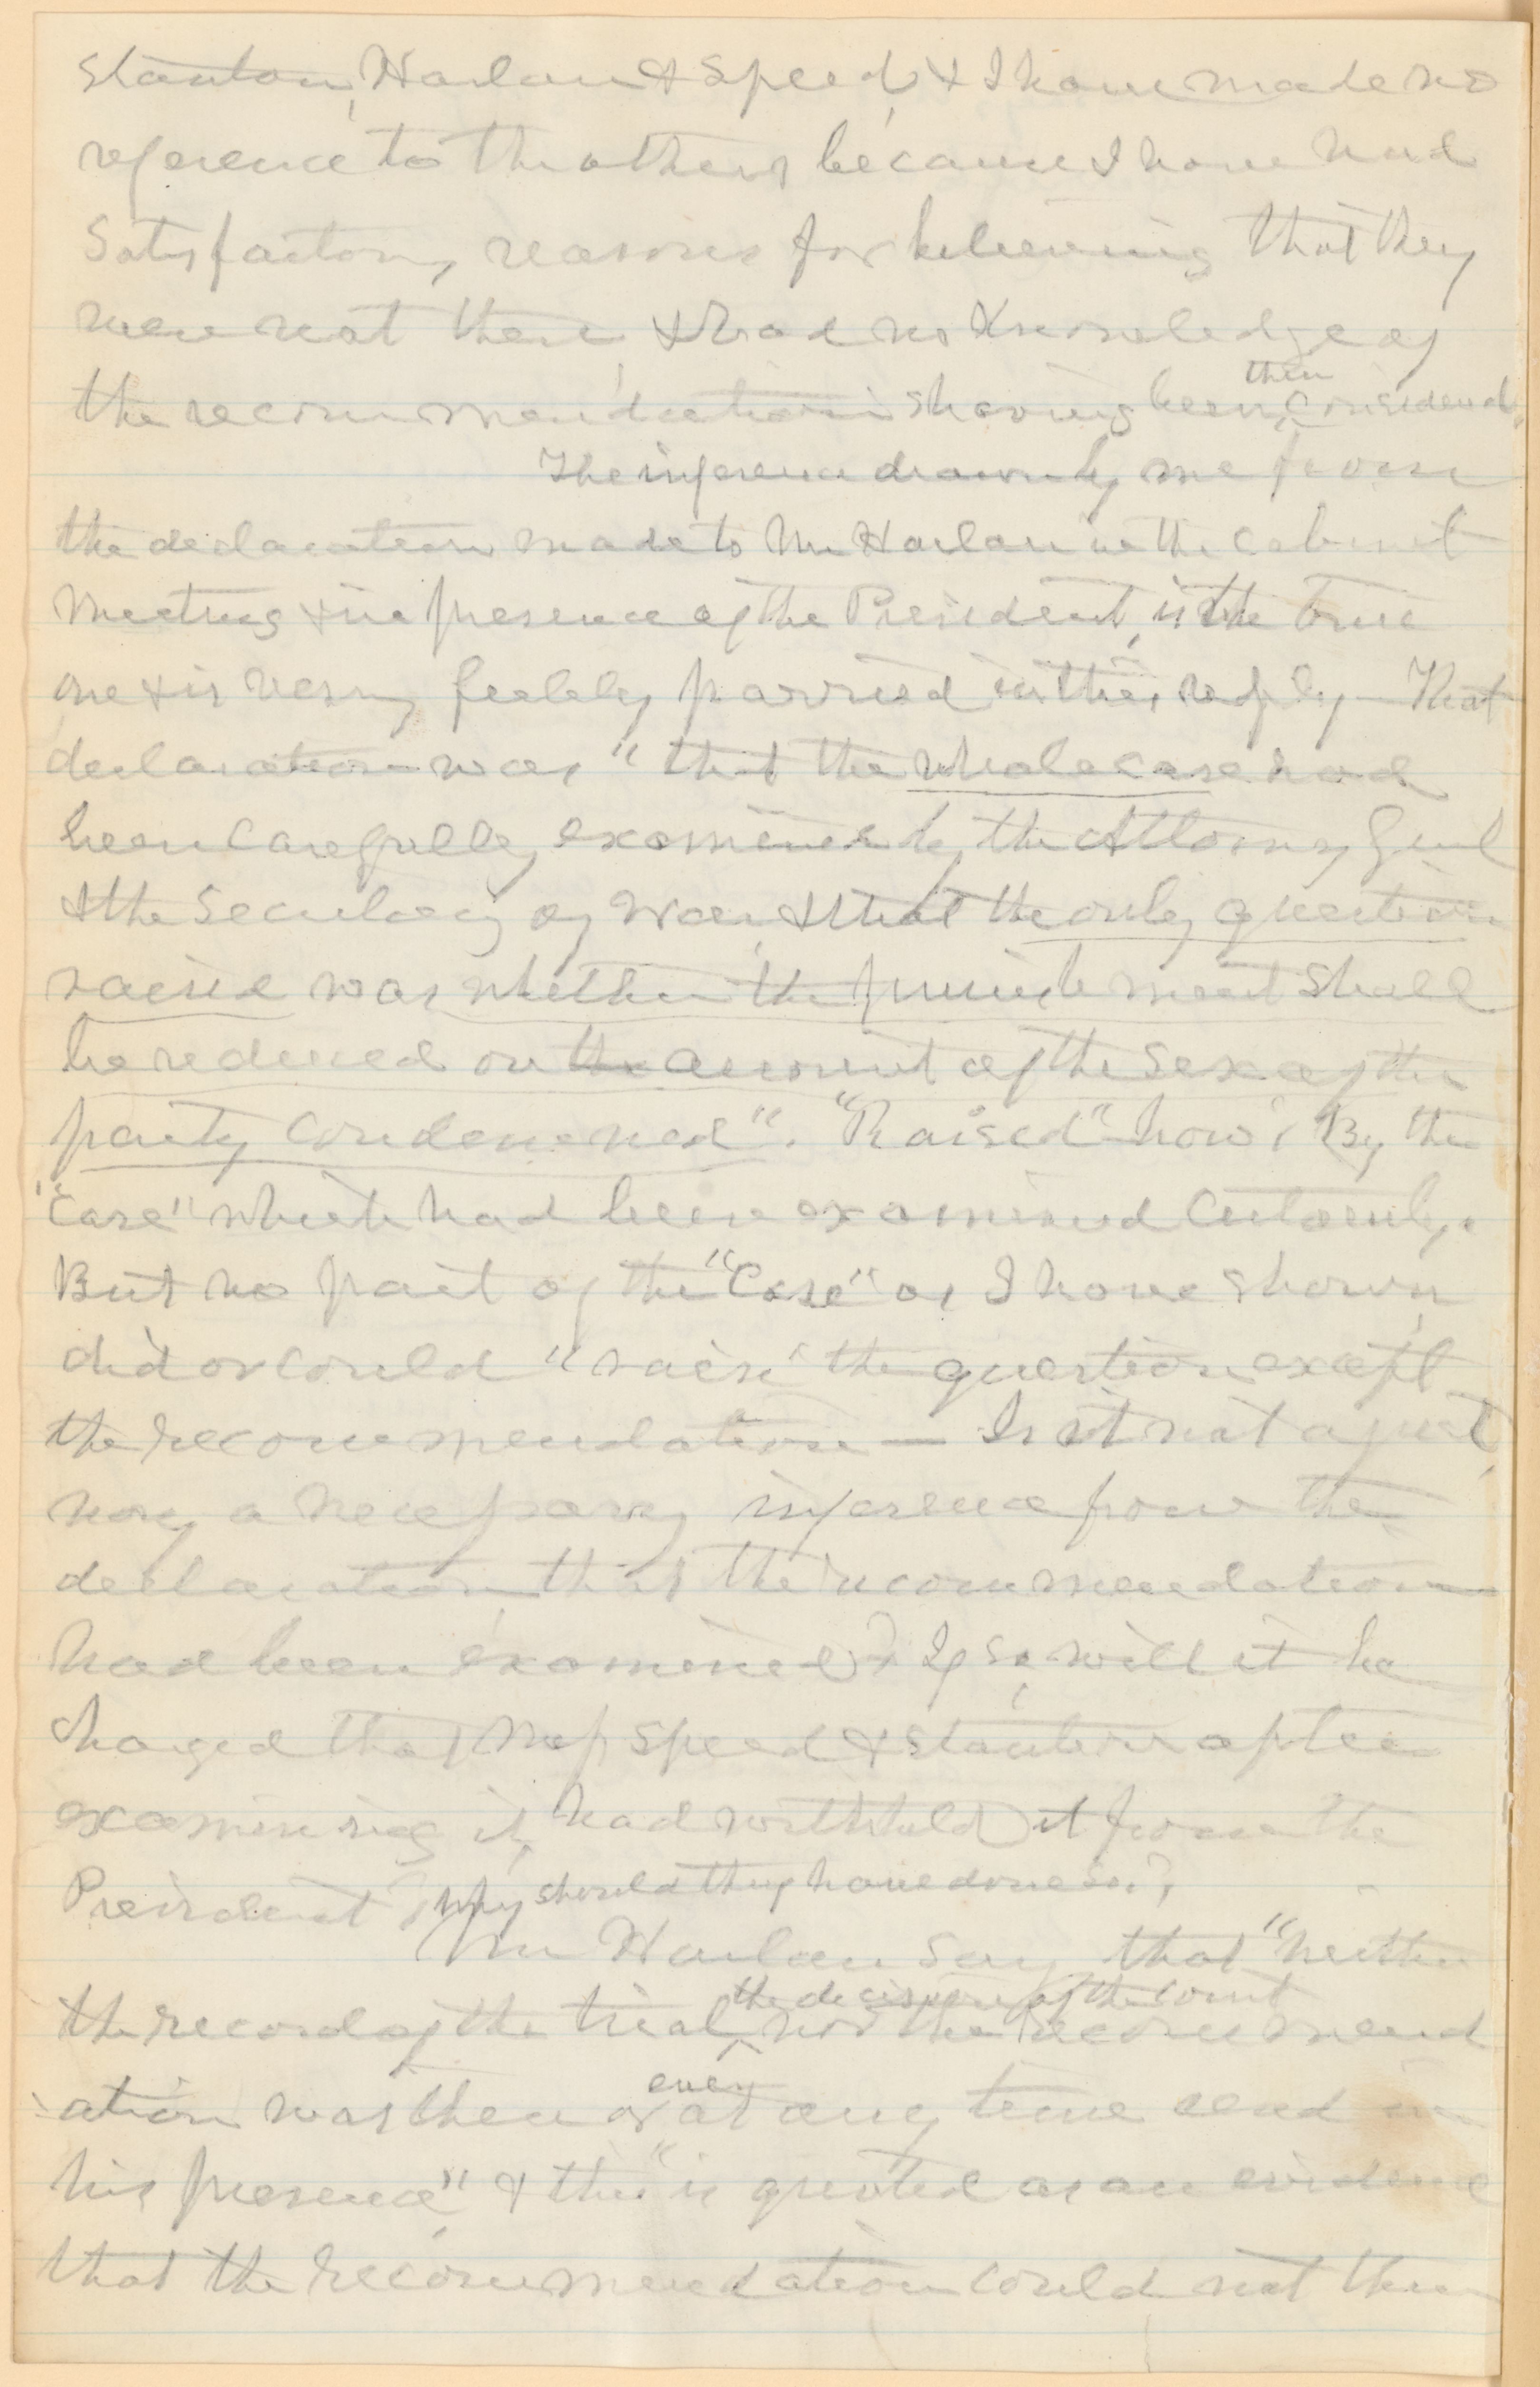 Stanton, Harlan & Speed, & I have made no
reference to the others because I have had
satisfactory reasons for believing that they
were not there & had no knowledge of
the recommendation's having been then considered.
The inference drawn by me from
the declaration made to Mr Harlan in the Cabinet
meeting & in presence of the President, is the true
one & is very feebly parried in the reply – That
declaration was "that the whole case had
been carefully examined by the Attorney Genl
& the Secretary of War, & that the only question
raised was whether the punishment shall
be reduced on the account of the sex of the
party condemned". "Raised" how? By the
"Case" which had been examined certainly.
But no part of the "Case" as I have shown,
did or could "raise" the question except
the recommendation — Is it not a just,
nay a necessary inference from the
declaration that the recommendation
had been examined? If so, will it be
charged that Mess Speed & Stanton after
examining it, had withheld it from the
President? Why should they have done so?
Mr Harlan says that "neither
the record of the trial, the decision of the court nor the recommend
ation was then or ever at any time read in
his presence" & this is quoted as an evidence
that the recommendation could not then